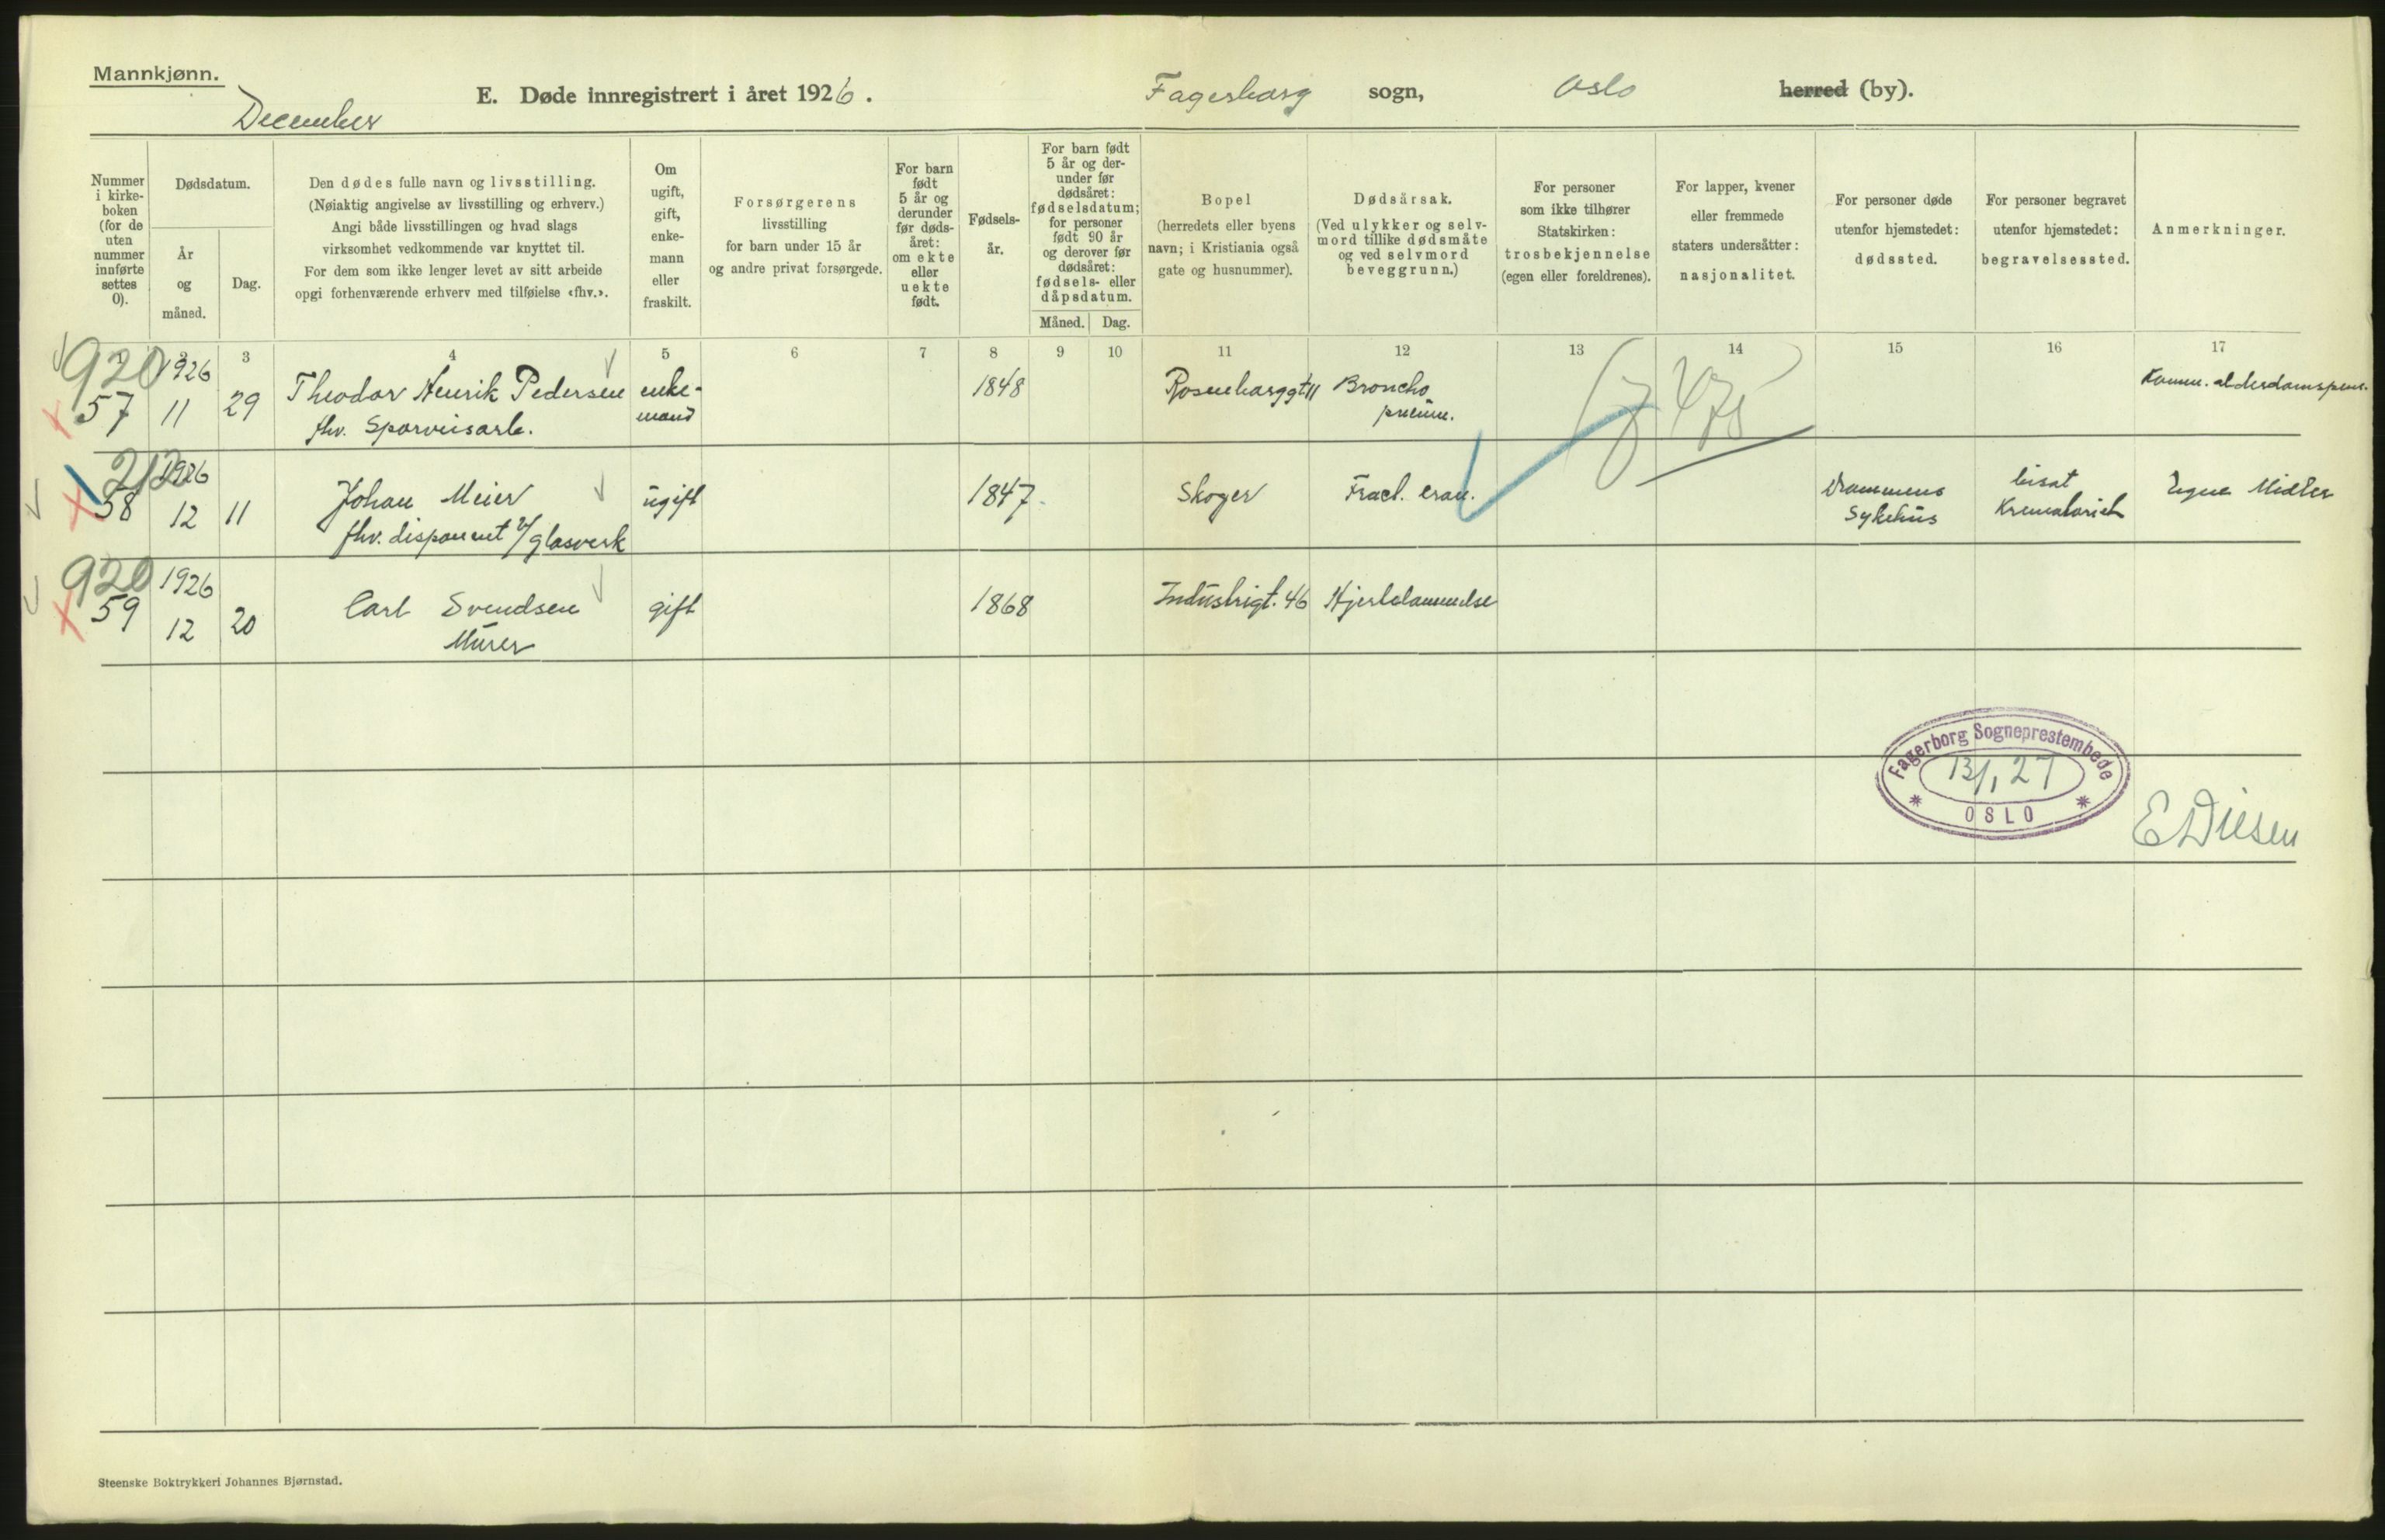 Mannkjønn.
December
E. Døde innregistrert i året 1926.
Fagerborg sogn, Oslo herred (by).
Nummer
i kirke-
boken
(for de
uten
nummer
innførte
settes
0).
Dødsdatum.
År
og
måned.
Dag.
Den dødes fulle navn og livsstilling.
(Nøiaktig angivelse av livsstilling og erhverv.)
Angi både livsstillingen og hvad slags
virksomhet vedkommende var knyttet til.
For dem som ikke lenger levet av sitt arbeide
opgi forhenværende erhverv med tilføielse «fhv.».
Om
ugift,
gift,
enke-
mann
eller
fraskilt.
Forsørgerens
livsstilling
for barn under 15 år
og andre privat forsørgede.
For barn
født
5 år og
derunder
før døds-
året:
om ekte
eller
uekte
født.
Fødsels-
år.
For barn født
5 år og der-
under før
dødsåret:
fødselsdatum;
for personer
født 90 år
og derover før
dødsåret:
fødsels- eller
dåpsdatum.
Måned. Dag.
Bopel
(herredets eller byens
navn; i Kristiania også
gate og husnummer).
Dødsårsak.
(Ved ulykker og selv-
mord tillike dødsmåte
og ved selvmord
beveggrunn.)
For personer
som ikke tilhører
Statskirken:
trosbekjennelse
(egen eller foreldrenes).
For lapper, kvener
eller fremmede
staters undersåtter:
nasjonalitet.
For personer døde
utenfor hjemstedet:
dødssted.
For personer begravet
utenfor hjemstedet:
begravelsessted.
Anmerkninger.
3 4 5 6 7 8 9 10 11 12 13 14 15 16 17
920 1926
57 11 29 Theodor Henrik Pedersen enke- 1848 Rosenborggt 11 Broncho Komm. alderdomspens.
fhv. Sporveisarb. mand pneum.
212 1926
58 12 11 Johan Meier ugift 1847. Skoger Fract. cran. Drammens bisat Egne Midler
fhv. disponent v/glasverk Sykehus Krematoriet
920 1926
59 12 20 Carl Svendsen gift 1868 Industrigt. 46 Hjertelammelse
Murer
Fagerborg Sogneprestembede
13/1 27
OSLO
E Diesen
Steenske Boktrykkeri Johannes Bjørnstad.